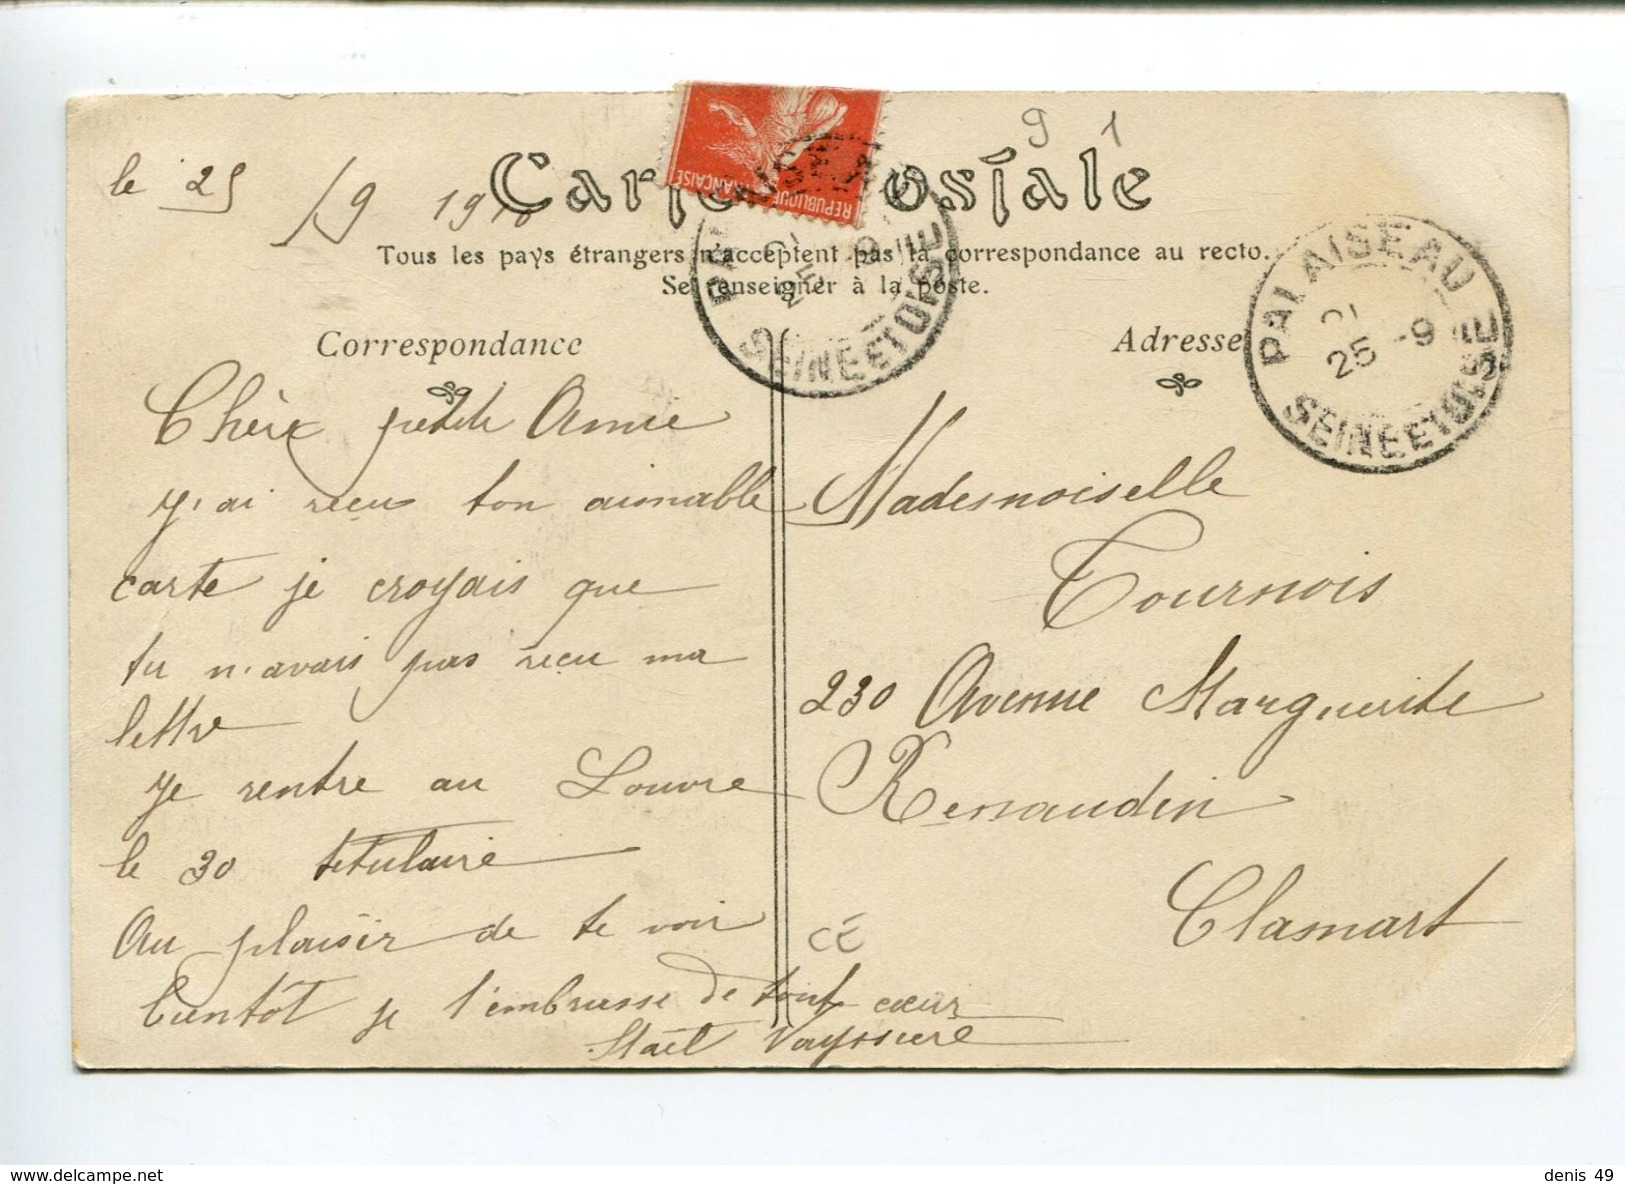 le 25/9 1910
Carte Postale
9 1
REPUBLIQUE FRANÇAISE
Tous les pays étrangers n'acceptent pas la correspondance au recto.
Se renseigner à la poste.
PALAISEAU
25 -9
SEINE ET OISE
PALAISEAU
25 -9
SEINE ET OISE
Correspondance
Chère petite Amie
J'ai reçu ton aimable
carte je croyais que
tu n'avais pas reçu ma
lettre
Je rentre au Louvre
le 30 titulaire
Au plaisir de te voir
bientôt je t'embrasse de tout cœur
Vayssiere
Adresse
Mademoiselle
Tournois
230 Avenue Marguerite
Renaudin
Clamart
CE
www.delcampe.net
denis 49